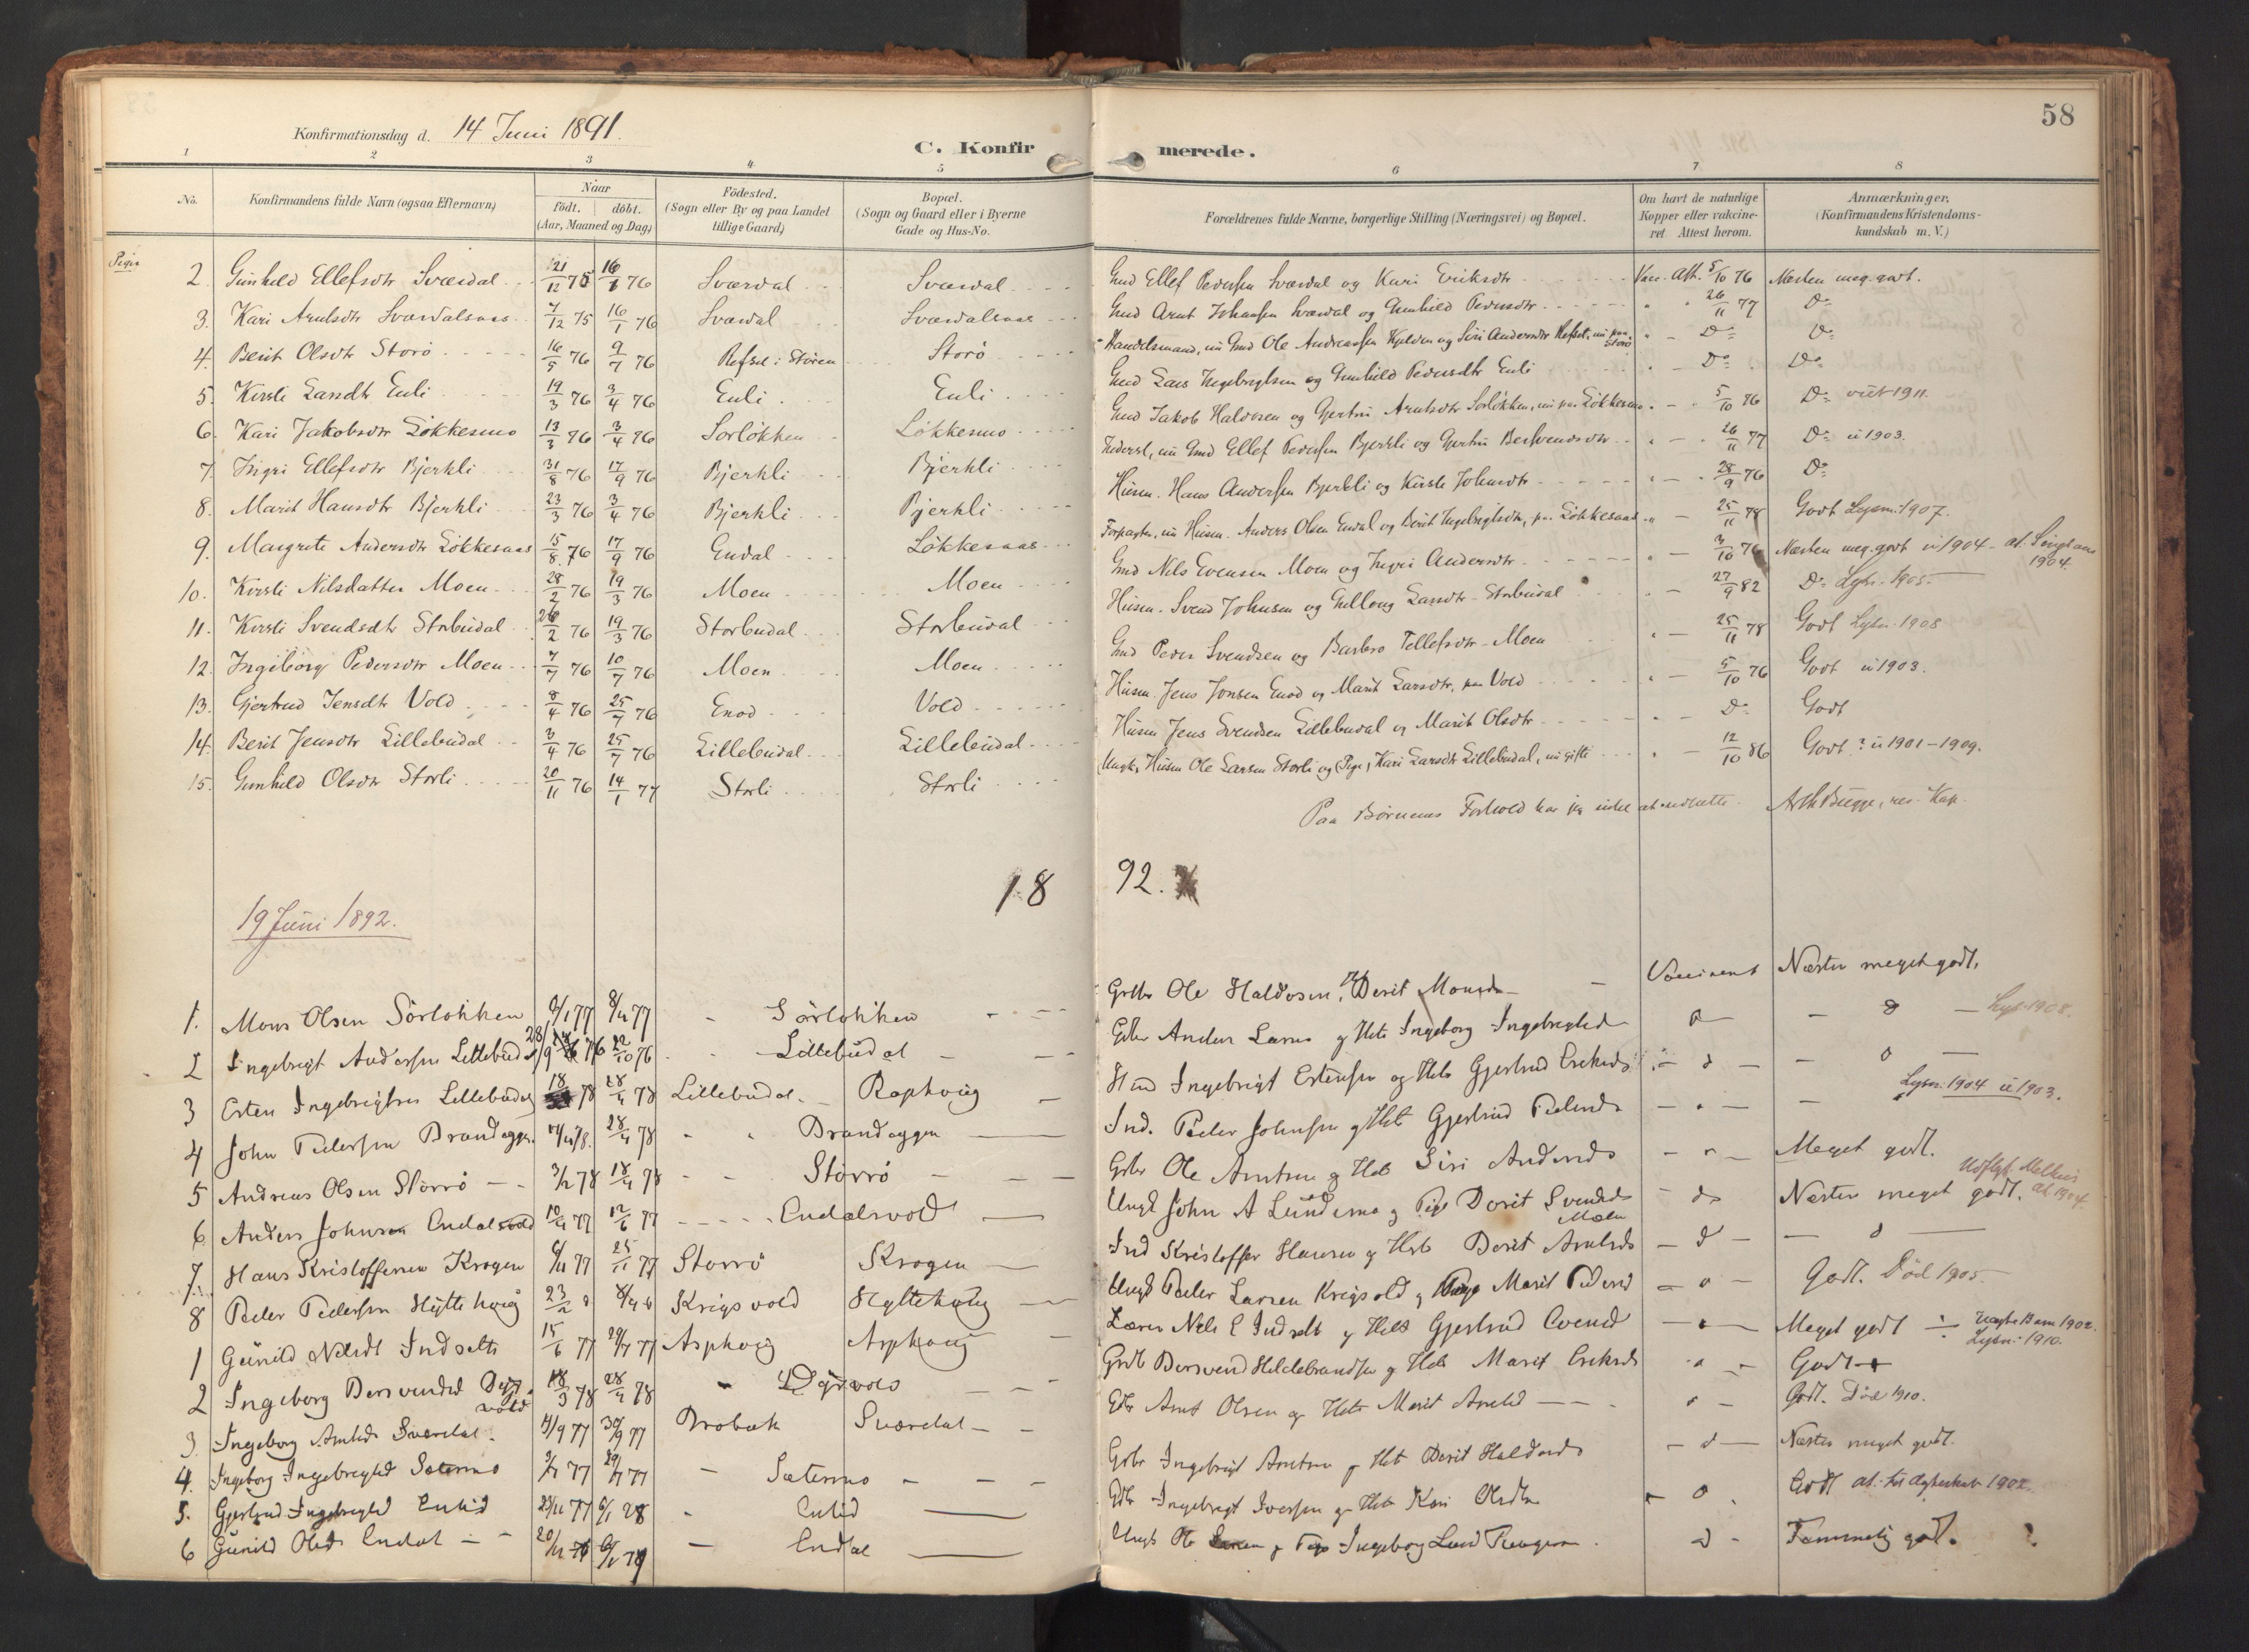 58
Konfirmationsdag d. 14 Juni 1891.
C. Konfirmerede.
1 2 3 4 5 6 7 8
No. Konfirmandens fulde Navn (ogsaa Efternavn) Naar født. døbt. (Aar, Maaned og Dag) Födested. (Sogn eller By og paa Landet tillige Gaard) Bopæl. (Sogn og Gaard eller i Byerne Gade og Hus-No. Forældrenes fulde Navne, borgerlige Stilling (Næringsvei) og Bopæl. Om havt de naturlige Kopper eller vakcineret Attest herom. Anmærkninger, (Konfirmandens Kristendomskundskab m. V.)
Piger
2. Gunhild Ellefsdtr Sværdal 21/12 75 16/1 76 Sværdal Sværdal Gmd Ellef Pedersen Sværdal og Kari Eriksdtr Vacc. Att. 5/10 76 Næsten meg. godt.
3. Kari Arntsdtr Sværdalsaas 7/12 75 16/1 76 Sværdal Sværdalsaas Gmd Arnt Johansen Sværdal og Gunhild Pedersdtr " " 26/11 77 Do
4. Berit Olsdtr Storö 16/5 76 9/7 76 Refset i Støren Storö Handelsmand, nu Gmd Ole Andreassen Kjelden og Siri Andersdtr Refset, nu paa Storö " - Do Do
5. Kirsti Larsdtr Enli 19/3 76 3/4 76 Enli Enli Gmd Lars Ingebrigtsen og Gunhild Pedersdtr Enli " - Do Do
6. Kari Jakobsdtr Lökkesmo 13/3 76 3/4 76 Sorlökken Lökkesmo Gmd Jakob Haldosen og Gjertru Arntsdtr Sorlökken, nu paa Lökkesmo " - 5/10 76 Do viet 1911.
7. Ingri Ellefsdtr Bjerkli 31/8 76 17/9 76 Bjerkli Bjerkli Föderst, nu Gmd Ellef Pedersen Bjerkli og Gjertru Bersvendsdtr " - 26/11 77 Do u 1903.
8. Marit Hansdtr Bjerkli 23/3 76 3/4 76 Bjerkli Bjerkli Husm. Hans Andersen Bjerkli og Kirsti Johnsdtr " - 28/9 76 Do
9. Margrete Andersdtr Lökkesaas 15/8 76 17/9 76 Endal Lökkesaas Forpagter, nu Husm. Anders Olsen Endal og Berit Ingebrigtsdtr, paa Lökkesaas " - 25/11 78 Godt Lysn. 1907.
10. Kirsti Nilsdatter Moen 28/2 76 19/3 76 Moen Moen Gmd Nils Evensen Moen og Ingri Andersdtr " - 3/10 76 Næsten meg. godt u 1904 - at. Singsaas 1904.
11. Kirsti Svendsdtr Storbudal 26/2 76 19/3 76 Storbudal Storbudal Husm. Svend Johnsen og Gullaug Larsdtr Storbudal - 27/9 82 Do Lysn. 1905.
12. Ingeborg Pedersdtr Moen 7/7 76 10/7 76 Moen Moen Gmd Peder Svendsen og Barbro Tellefsdtr Moen " - 25/11 78 Godt Lysn. 1908
13. Gjertrud Jensdtr Vold 8/4 76 25/7 76 Enod Vold Husm. Jens Jonsen Enod og Marit Larsdtr, paa Vold " - 5/10 76 Godt u 1903.
14. Berit Jensdtr Lillebudal 3/4 76 25/7 76 Lillebudal Lillebudal Husm Jens Svendsen Lillebudal og Marit Olsdtr " - Do Godt
15. Gunhild Olsdtr Storli 20/11 76 14/1 77 Storli Storli (Ungk) Husm Ole Larsen Storli og (Pige) Kari Larsdtr Lillebudal, nu gifte " - 12/10 86 Godt? u 1901-1909.
Paa Börnenes Forhold har jeg intet at udsætte. Bugge, res. Kap.
18 92.
19 Juni 1892.
1. Mons Olsen Sörlökken 9/1 77 8/4 77 - Sörlökken Grbr Ole Haldosen, Berit Monsd Vaccineret Næsten meget godt.
2 Ingebrigt Andersen Lillebudal 28/9 76 22/10 76 Lillebudal Gbr Anders Larsen og Hst Ingeborg Ingebrigtsd d - d - Lys. 1908.
3 Esten Ingebrigtsen Lillebudal 18/ 78 28/4 78 Lillebudal Raphoug Hmd Ingebrigt Estensen og Hst Gjertrud Eriksd - d - - d -
4 John Pedersen Brandeggen 14/4 78. 28/4 78 Brandeggen Ind. Peder Johnsen og Hst Gjertrud Pedersd - " - - Lysn. 1904 u 1903.
5 Andreas Olsen Storrö 3/2 78 18/4 78 Storrö Gbr Ole Arntsen og Hst Siri Andersd - " - Meget godt.
6 Anders Johnsen Endalsvold 10/4 77 17/6 77 Endalsvold Ungk John A Lundemo og Pige Dorit Svendsd Moen - do Næsten meget godt. Udflyt. Melhus at 1904
7. Hans Kristoffersen Krogen 6/11 77 25/11 77 Storrö Krogen Ind Kristoffer Hansen og Hst Berit Arntsd - d - - d -
8 Peder Pedersen Hyttehoug 23/2 8/4 Krigsvold Hyttehoug Ungk Peder Larsen Krigsvold og Pige Marit Pedersd - " - Godt. Död 1905.
1 Gunild Nilsdt Indset 15/6 77 29/7 77 Asphoug Asphoug Lærer Nils E Indset og Hst Gjertrud Svend - " - Meget godt ÷ uægte Barn 1902. Lysn. 1910.
2 Ingeborg Bersvendsd Digrvold 18/3 78 28/4 78 - Digrvold Grbr Bersvend Hildebrandsen og Hst Marit Eriksd " - Godt +
3. Ingeborg Arntsd Sværdal 14/9 77 30/9 77 Brobæk Sværdal Gbr Arnt Olsen og Hst Marit Arntsd " - Godt. Död 1910.
4. Ingeborg Ingebrigtsd Sætermo 3/7 77 29/7 77 - Sætermo Grbr Ingebrigt Arntsen og Hst Berit Haldosd - d - Næsten meget godt.
5. Gjertrud Ingebrigtsd Enlid 23/11 77 6/1 78 - Enlid Gbr Ingebrigt Iversen og Hst Kari Olsdtr - d Godt at. til Ægteskab 1902.
6 Gunild Olsd Endal 20/11 6/1 - Endal Ungk Ole og Pige Ingeborg d - Temmelig godt.